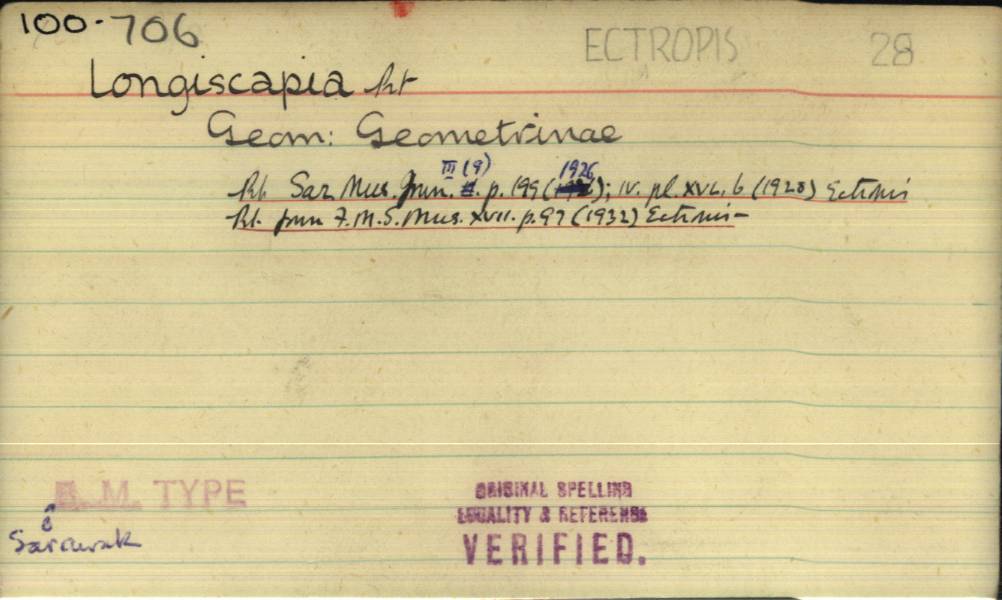 100-706
ECTROPIS 28
Longiscapia Prt
Geom: Geometrinae
III (9) 1926
Prt. Sar Mus. Journ. p. 199 ( ); IV. pl. XVI. 6 (1928) Ectropis
Prt. Journ F.M.S. Mus. XVII. p. 97 (1932) Ectropis-
B.M. TYPE
Sarawak
ORIGINAL SPELLING
LOCALITY & REFERENCE
VERIFIED.